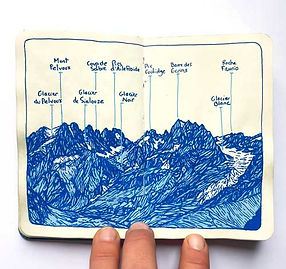 Mont
Pelvoux
Coup de
Sabre
Pic
d'Ailefroide
Pic
Coolidge
Barre des
Ecrins
Roche
Faurio
Glacier
du Pelvoux
Glacier
de Sialouze
Glacier
Noir
Glacier
Blanc